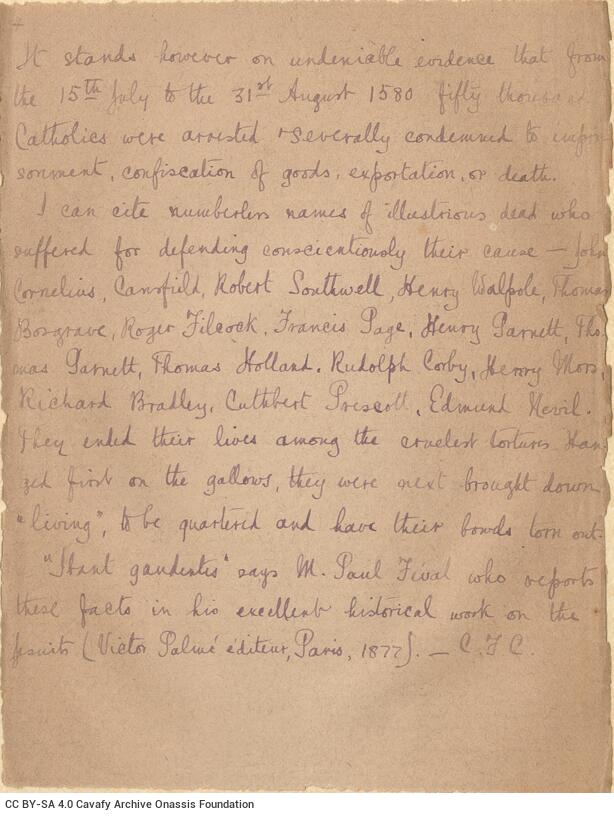 4
It stands however on undeniable evidence that from
the 15th July to the 31st August 1580 fifty thousand
Catholics were arrested & severally condemned to impri
sonment, confiscation of goods, exportation, or death.
I can cite numberless names of illustrious dead who
suffered for defending conscientiously their cause — John
Cornelius, Cansfield, Robert Southwell, Henry Walpole, Thomas
Bosgrave, Roger Filcock, Francis Page, Henry Garnett, Tho
mas Garnett, Thomas Holland, Rudolph Corby, Henry Mors,
Richard Bradley, Cuthbert Prescott, Edmund Nevil.
They ended their lives among the cruelest tortures. Han
ged first on the gallows, they were next brought down
"living", to be quartered and have their bowels torn out.
"Ibant gaudentes" says M. Paul Féval who reports
these facts in his excellent historical work on the
Jesuits (Victor Palmé éditeur, Paris, 1877). — C. F. C.
CC BY-SA 4.0 Cavafy Archive Onassis Foundation